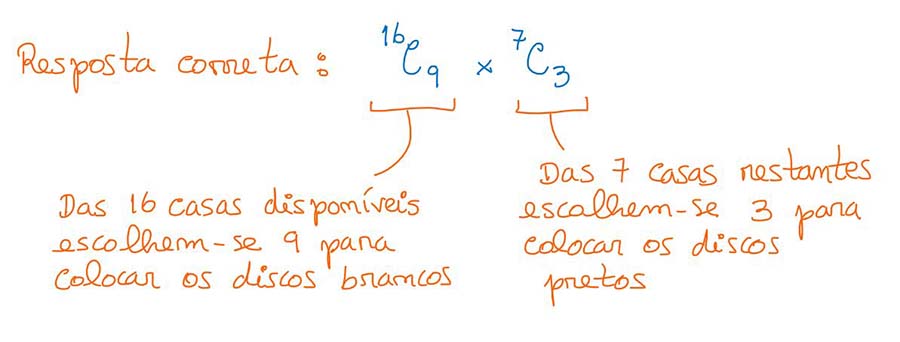 Resposta correta : ¹⁶C₉ × ⁷C₃
Das 16 casas disponíveis
escolhem-se 9 para
colocar os discos brancos
Das 7 casas restantes
escolhem-se 3 para
colocar os discos
pretos